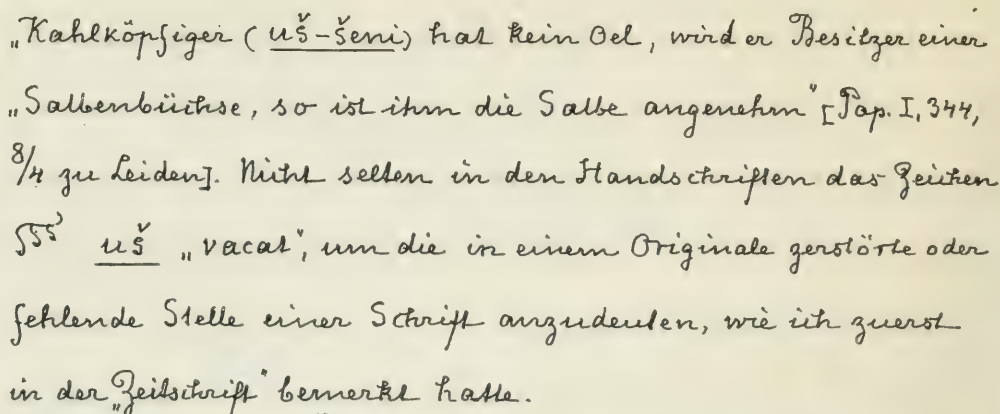 „Kahlköpfiger (uš-šeni) hat kein Oel, wird er Besitzer einer
„Salbenbüchse, so ist ihm die Salbe angenehm“ [Pap. I, 344,
8/4 zu Leiden]. Nicht selten in den Handschriften das Zeichen
uš „vacat“, um die in einem Originale zerstörte oder
fehlende Stelle einer Schrift anzudeuten, wie ich zuerst
in der „Zeitschrift“ bemerkt hatte.